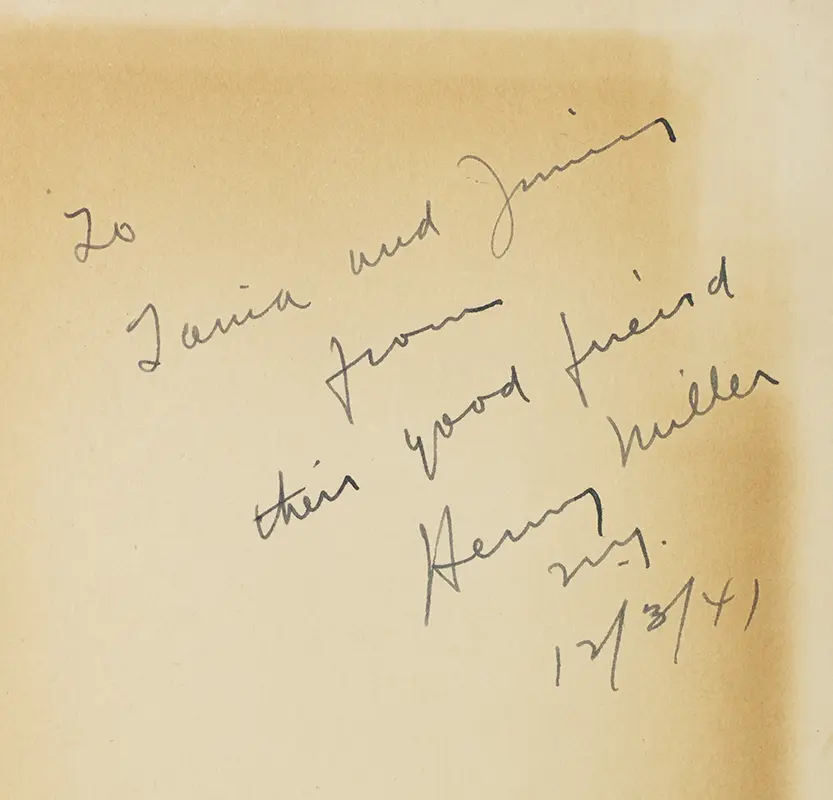 To
Tania and Jimmy
from
their good friend
Henry Miller
N.Y.
12/3/41